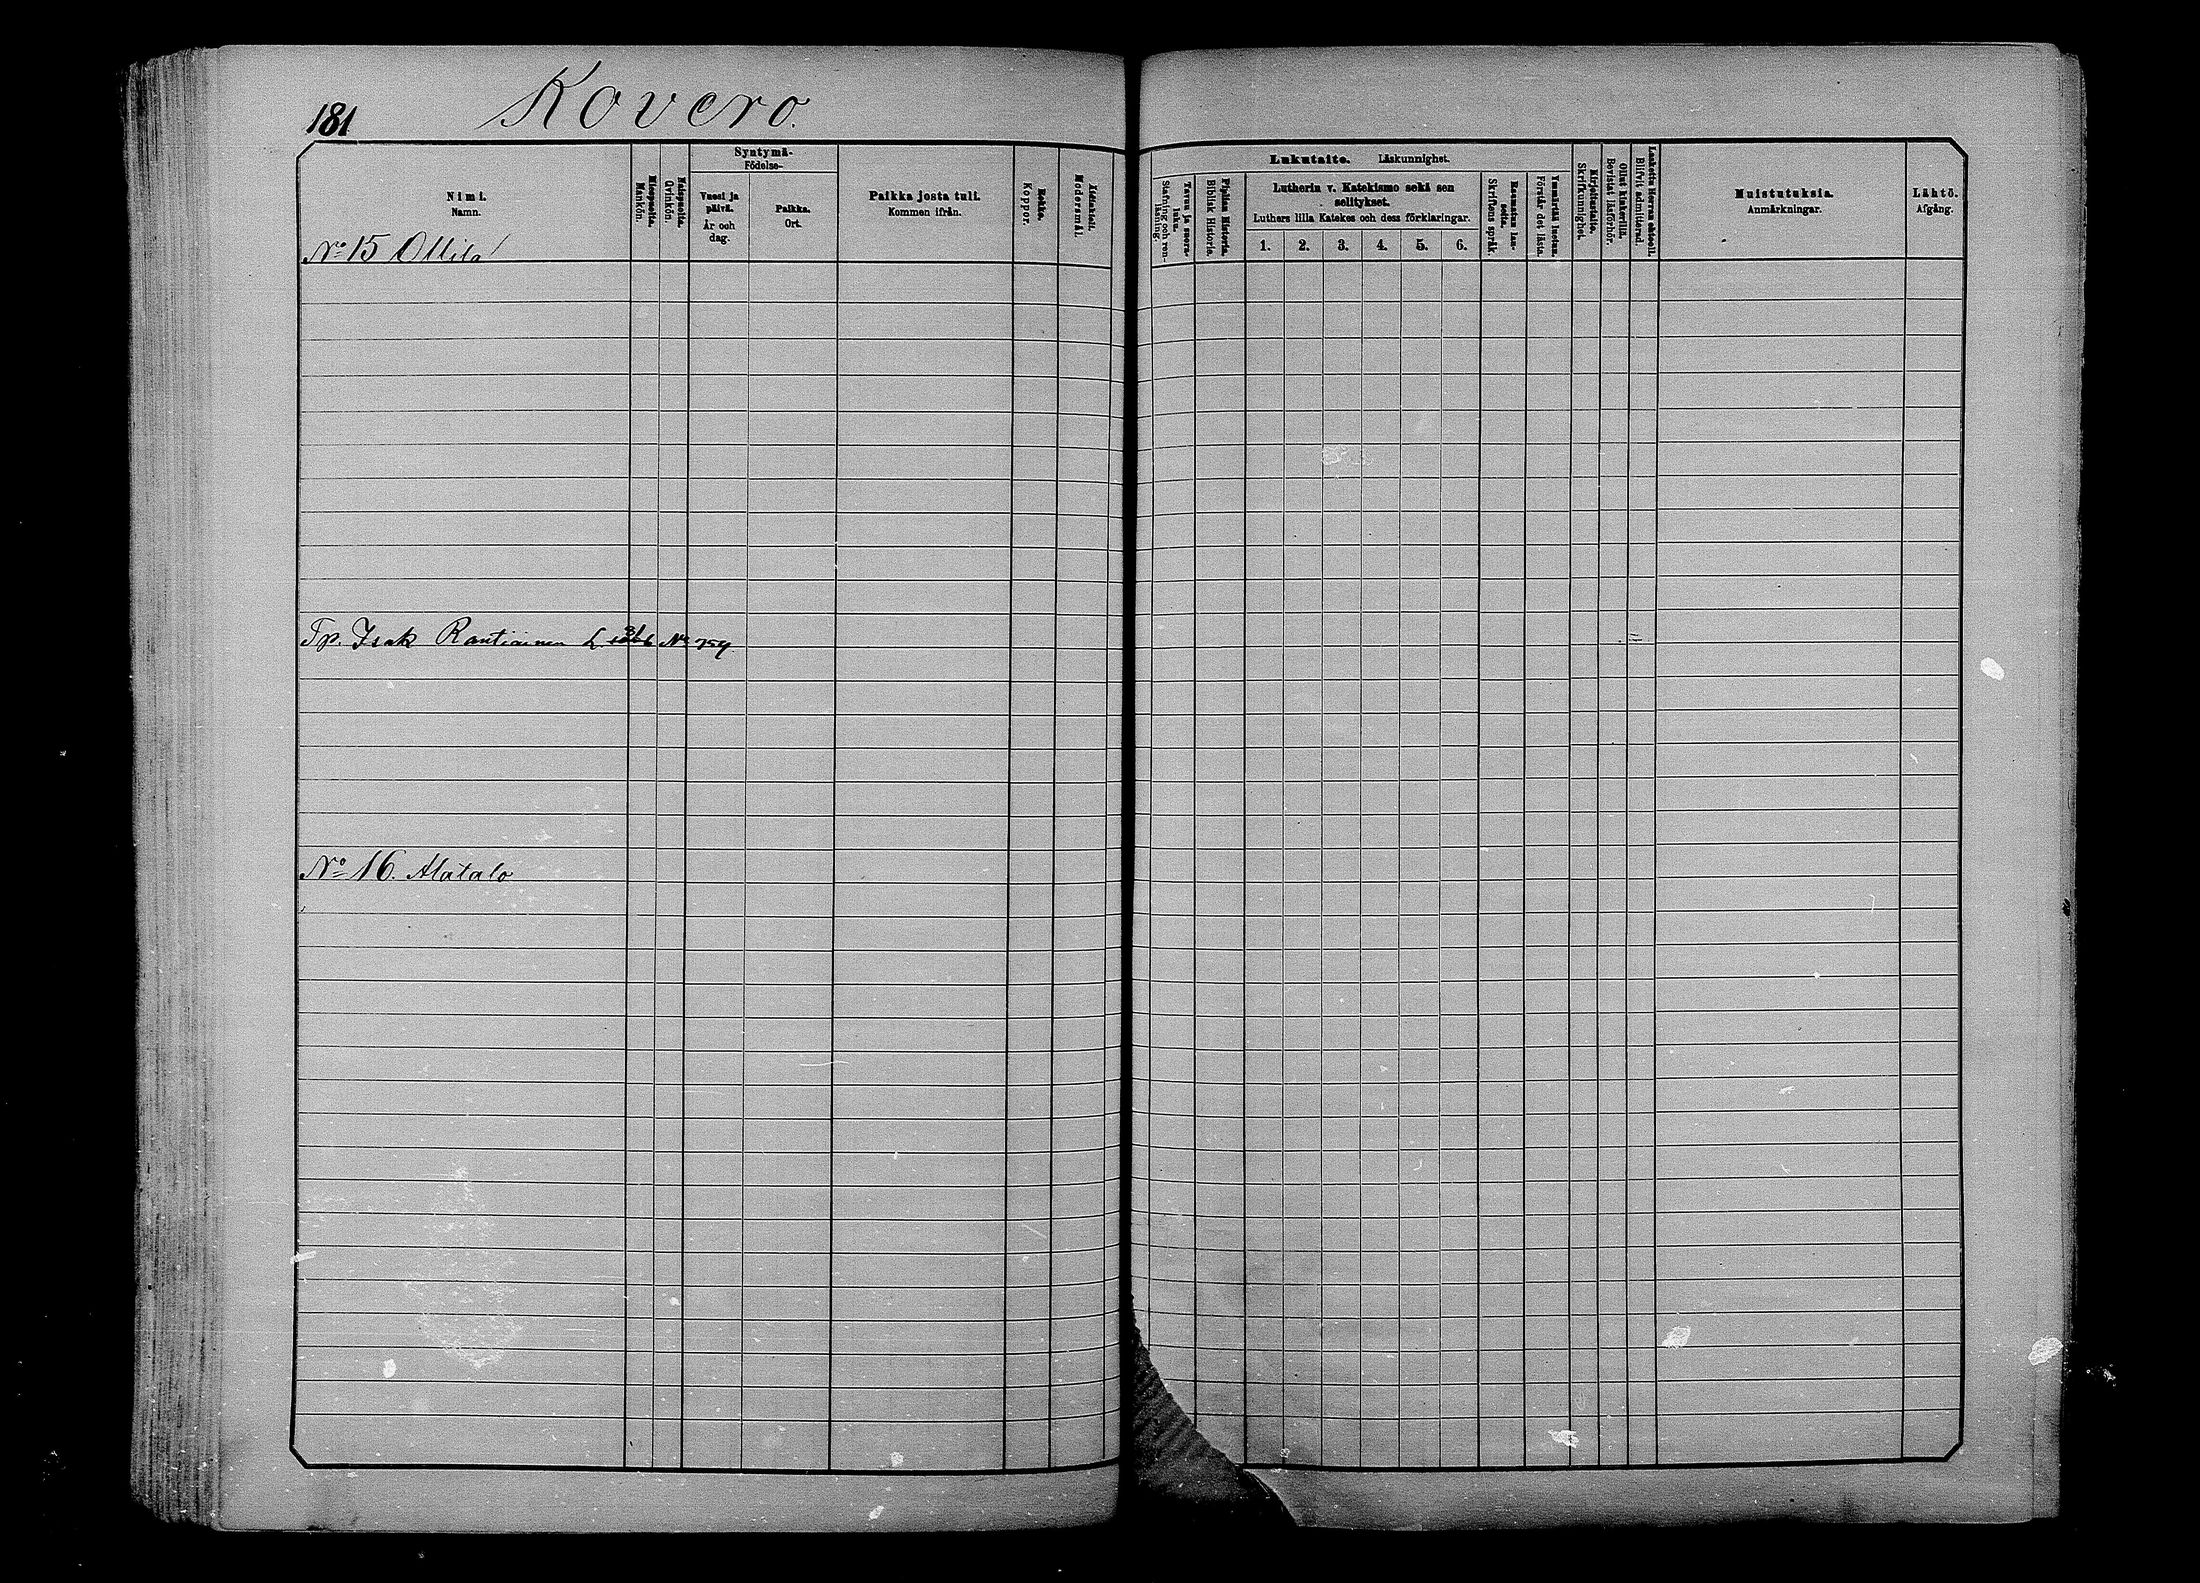 181
Kovero.
Nimi.
Namn.
Miespuolta.
Mankön.
Naispuolta.
Qvinkön.
Syntymä-
Födelse-
Vuosi ja
päivä.
År och
dag.
Paikka.
Ort.
Paikka josta tuli.
Kommen ifrån.
Rokko.
Koppor.
Äidinkieli.
Modersmål.
Tavuu ja suora-
luku.
Stafning och ren-
läsning.
Piplian Historia.
Biblisk Historia.
Lukutaito. Läskunnighet.
Lutherin v. Katekismo sekä sen
selitykset.
Luthers lilla Katekes och dess förklaringar.
1. 2. 3. 4. 5. 6.
Raamatun lau-
seita.
Skriftens språk.
Ymmärtää luetun.
Förstår det lästa.
Kirjoitustaito.
Skrifkunnighet.
Ollut kinkerillä.
Bevistat läsförhör.
Laskettu Herran ehtoolle.
Blifvit admitterad.
Muistutuksia.
Anmärkningar.
Lähtö.
Afgång.
No 15 Ollila
Tp. Isak Rantiainen L. No 759
No 16. Alatalo